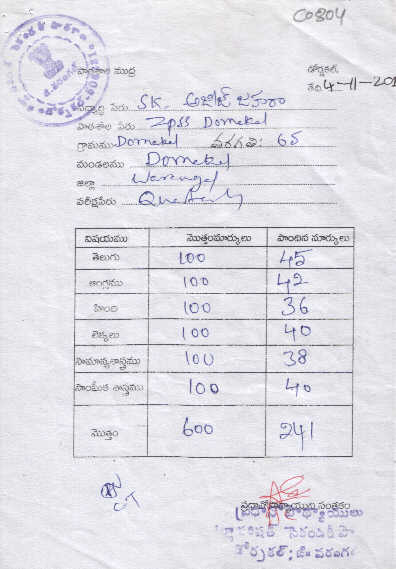 C0804
పాఠశాల ముద్ర
డోర్నకల్,
తేది 4-11-201
విద్యార్థి పేరు SK. అజీజ్ జహరా
పాఠశాల పేరు ZPSS Dornekal
గ్రామము Dornekal తరగతి: 6
మండలము Dornekal
జిల్లా Warangal
పరీక్షపేరు
విషయము మొత్తంమార్కులు పొందిన మార్కులు
తెలుగు 100 45
ఆంగ్లము 100 42
హింది 100 36
లెక్కలు 100 40
సామాన్యశాస్త్రము 100 38
సాంఘీక శాస్త్రము 100 40
మొత్తం 600 241
ప్రధానోపాధ్యాయుని సంతకం